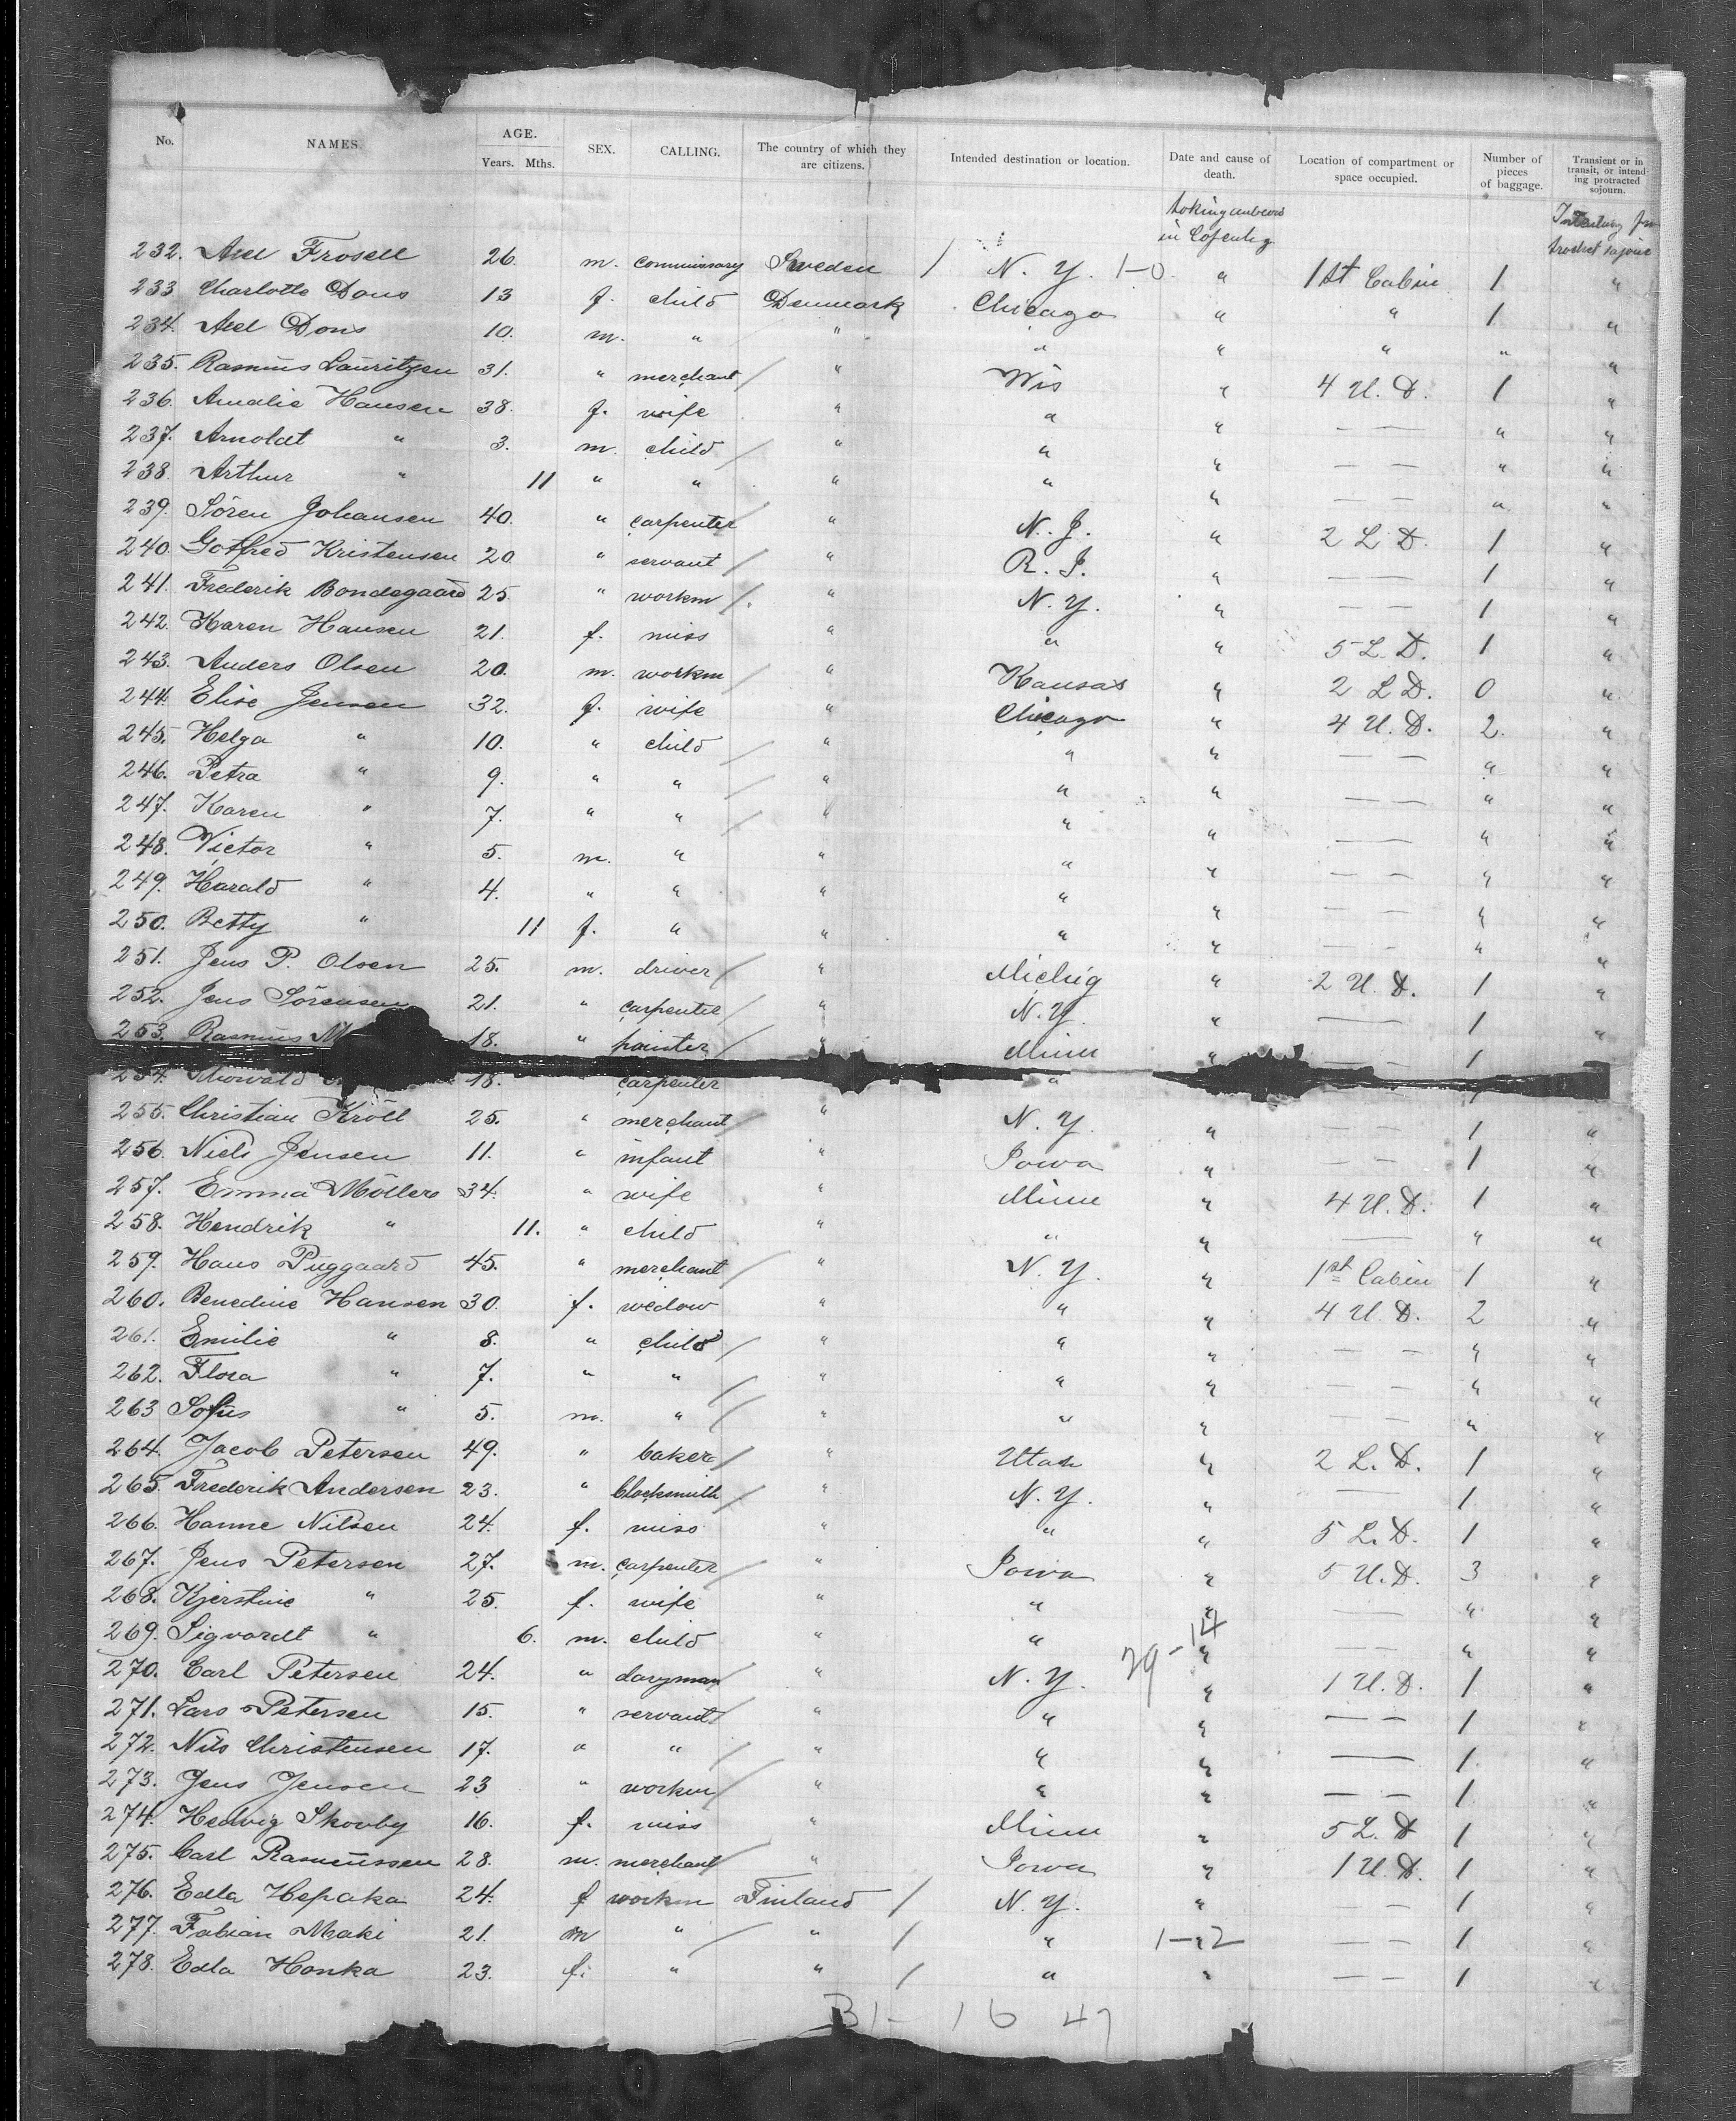 No. NAMES. AGE. Years. Mths. SEX. CALLING. The country of which they are citizens. Intended destination or location. Date and cause of death. Location of compartment or space occupied. Number of pieces of baggage. Transient or in transit, or intending protracted sojourn.
in
232. Axel Frosell 26. m. commissary Sweden / N. Y. 1-0 " 1st Cabin 1 "
233 Charlotte Dons 13 f. child Denmark Chicago " " 1 "
234. Axel Dons 10. m. " " " " " " "
235. Rasmus Lauritzen 31. " merchant / " Wis " 4 U. D. 1 "
236. Amalie Hansen 38. f. wife " " " — — " "
237. Arnoldt " 3. m. child / " " " — — " "
238. Arthur " 11 " " " " " — — " "
239. Sören Johansen 40. " carpenter " N. J. " 2 L. D. 1 "
240. Gotfred Kristensen 20 " servant / " R. I. " — — 1 "
241. Frederik Bondegaard 25 " workm / " N. Y. " — — 1 "
242. Karen Hansen 21. f. miss " " " 5 L. D. 1 "
243. Anders Olsen 20. m. workm / " Kansas " 2 L D. 0 "
244. Elise Jensen 32. f. wife " Chicago " 4 U. D. 2. "
245. Helga " 10. " child / " " " — — " "
246. Petra " 9. " " / " " " — — " "
247. Karen " 7. " " / " " " — — " "
248. Victor " 5. m. " " " " — — " "
249. Harald " 4. " " " " " — — " "
250. Betty " 11 f. " " " " — — " "
251. Jens P. Olsen 25. m. driver / " Michig " 2 U. D. 1 "
252. Jens Sörensen 21. " carpenter / " N. Y. " — 1 "
253. Rasmus M 18. " painter / " Minn " — — 1 "
254. Thorvald 18. " carpenter "
255. Christian Kröll 25. " merchant / " N. Y. " — — 1 "
256. Niels Jensen 11. " infant " Iowa " — — 1 "
257. Emma Möllers 34. " wife " Minn " 4 U. D. 1 "
258. Hendrik " 11. " child " " " — " "
259. Hans Puggaard 45. " merchant / " N. Y. " 1st Cabin 1 "
260. Benedine Hansen 30. f. widow " " " 4 U. D. 2 "
261. Emilie " 8. " child / " " " — — " "
262. Flora " 7. " " / " " " — — " "
263 Sofus " 5. m. " / " " " — — " "
264. Jacob Petersen 49. " baker / " Utah " 2 L. D. 1 "
265. Frederik Andersen 23. " blocksmith / " N. Y. " — 1 "
266. Hanne Nilsen 24. f. miss " " " 5 L. D. 1 "
267. Jens Petersen 27. m. carpenter / " Iowa " 5 U. D. 3 "
268. Kjerstine " 25. f. wife " " " — " "
269. Sigvardt " 6. m. child " " 29-14 " — — " "
270. Carl Petersen 24. " daryman / " N. Y. " 1 U. D. 1 "
271. Lars Petersen 15. " servant / " " " — — 1 "
272. Nils Christensen 17. " " / " " " — 1. "
273. Jens Jensen 23 " workm / " " " — — 1. "
274. Hedvig Skovby 16. f. miss " Minn " 5 L. D 1 "
275. Carl Rasmussen 28. m. merchant / " Iowa " 1 U. D. 1 "
276. Edla Hepaka 24. f workm Finland / N. Y. " — — 1 "
277. Fabian Maki 21. m " / " / " 1-2 — — 1 "
278. Edla Honka 23. f. " " / " " — — 1 "
31- 16 47